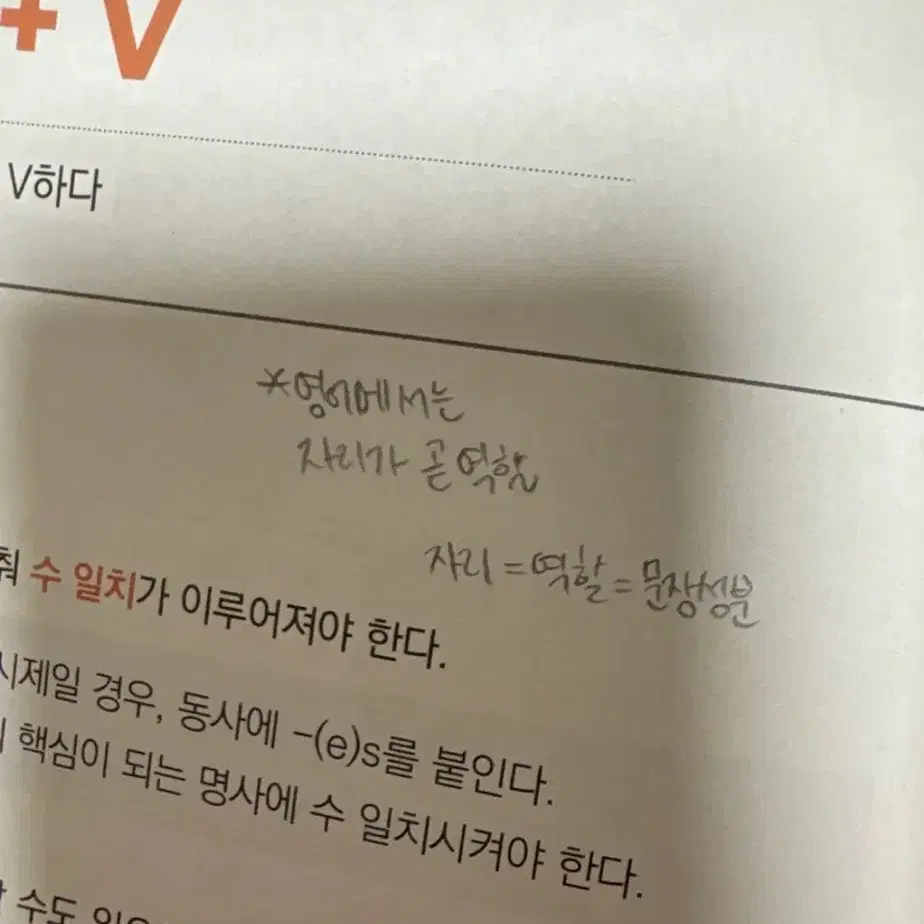 + V
V하다
*영어에서는
자리가 곧 역할
자리 = 역할 = 문장성분
수 일치가 이루어져야 한다.
시제일 경우, 동사에 -(e)s를 붙인다.
핵심이 되는 명사에 수 일치시켜야 한다.
수도